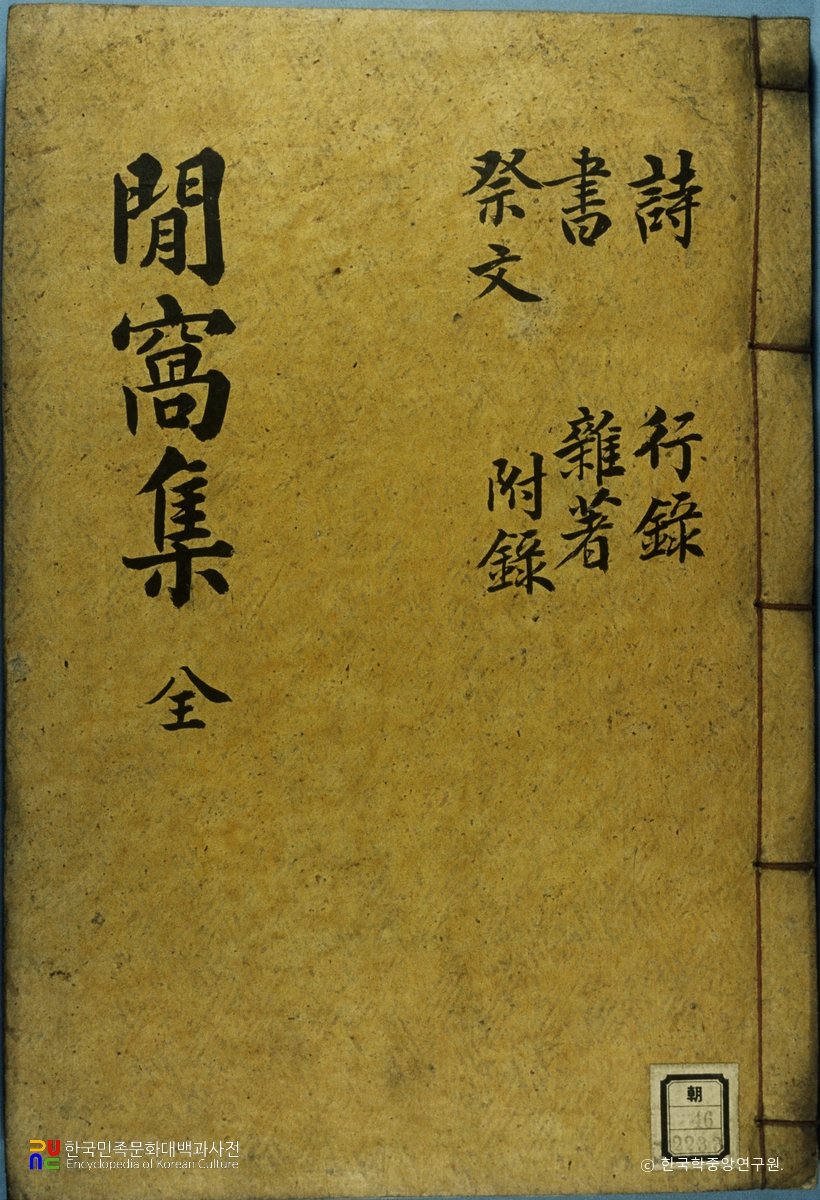 詩 行錄
書 雜著
祭文 附錄
閒窩集 全
朝
46
한국민족문화대백과사전
Encyclopedia of Korean Culture
ⓒ 한국학중앙연구원.